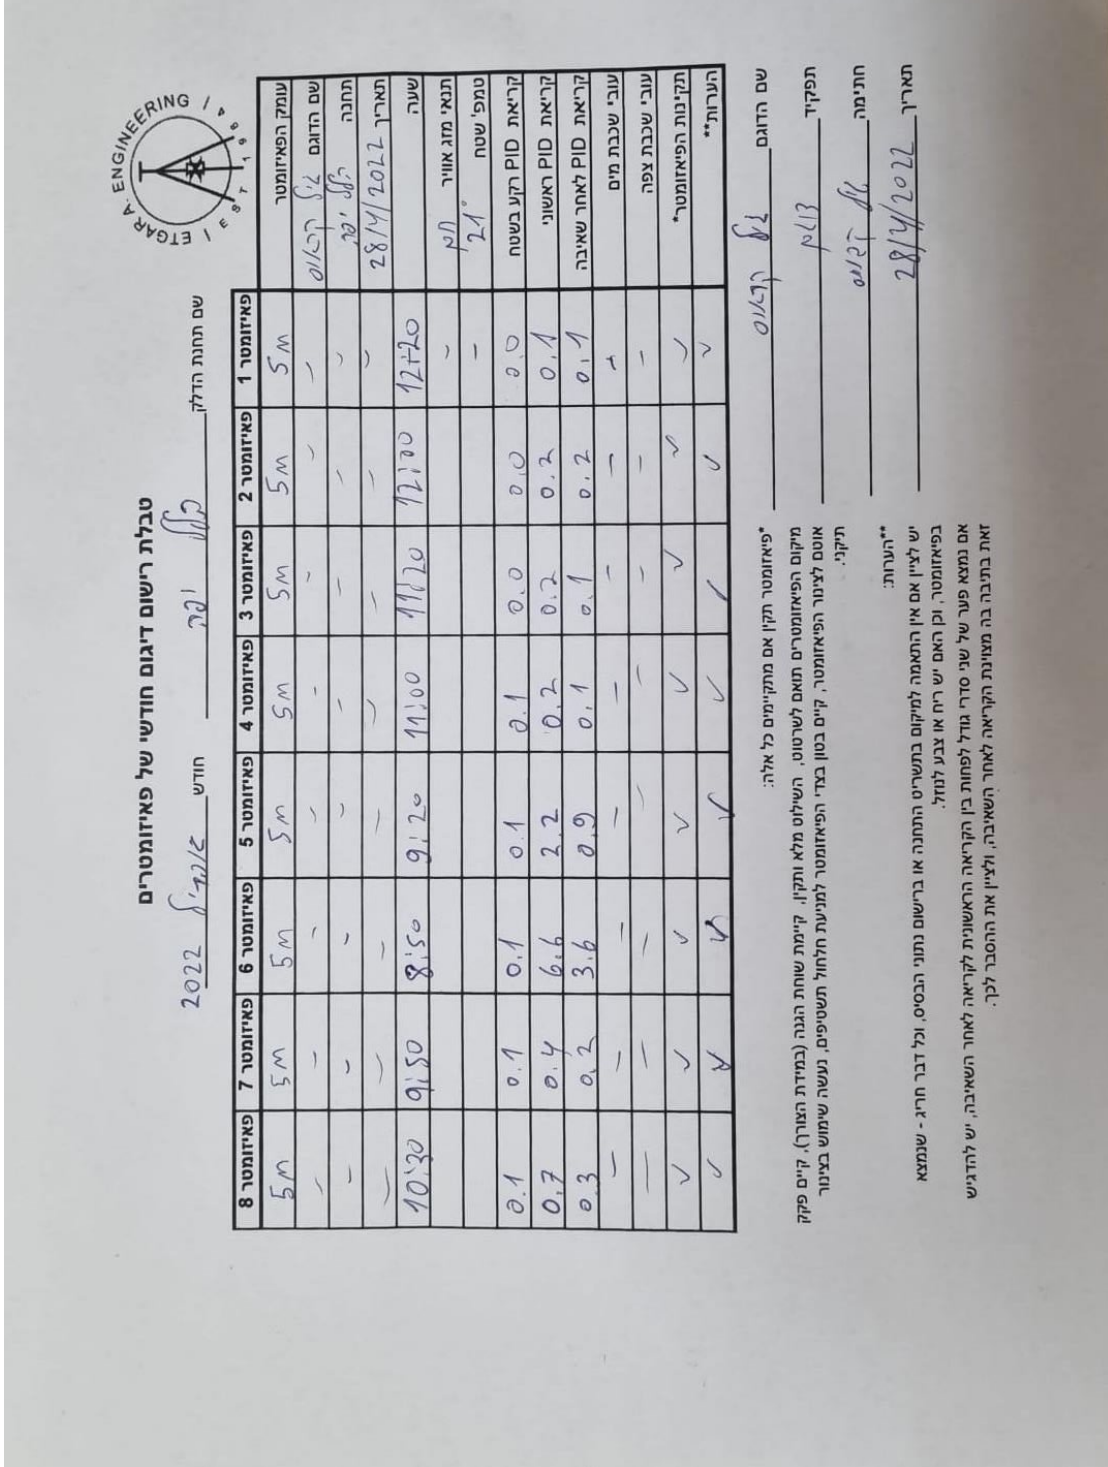 ETGAR A. ENGINEERING
טבלת רישום דיגום חודשי של פאיזומטרים
שם תחנת הדלק יפה חודש אפריל 2022
פאיזומטר 1 פאיזומטר 2 פאיזומטר 3 פאיזומטר 4 פאיזומטר 5 פאיזומטר 6 פאיזומטר 7 פאיזומטר 8
עומק הפאיזומטר 5m 5m 5m 5m 5m 5m 5m 5m
שם הדוגם - - - - - - - -
תחנה - - - - - - - -
תאריך 28/4/2022 - - - - - - - -
שעה 12:20 12:00 11:20 11:00 9:20 8:50 9:50 10:30
תנאי מזג אוויר חם -
טמפ' שטח 21° -
קריאות PID רקע בשטח 0.0 0.0 0.0 0.1 0.1 0.1 0.1 0.1
קריאות PID ראשוני 0.1 0.2 0.2 0.2 2.2 6.6 0.4 0.7
קריאות PID לאחר שאיבה 0.1 0.2 0.1 0.1 0.9 3.6 0.2 0.3
עובי שכבת מים - - - - - - - -
עובי שכבת צפה - - - - - - - -
תקינות הפיאזומטר* ✓ ✓ ✓ ✓ ✓ ✓ ✓ ✓
הערות** ✓ ✓ ✓ ✓ ✓ ✓ ✓ ✓
שם הדוגם
תפקיד דוגם
חתימה
תאריך 28/4/2022
*פיאזומטר תקין אם מתקיימים כל אלה:
מיקום הפיאזומטרים תואם לשרטוט, השילוט מלא ותקין, קיימת שוחת הגנה (במידת הצורך), קיים פקק
אוטם לצינור הפיאזומטר, קיים בטון בצדי הפיאזומטר למניעת חלחול תשטיפים, נעשה שימוש בצינור
תיקני.
**הערות:
יש לציין אם אין התאמה למיקום בתשריט התחנה או ברישום נתוני הבסיס, וכל דבר חריג - שנמצא
בפאיזומטר, וכן האם יש ריח או צבע לנוזל.
אם נמצא פער של שני סדרי גודל לפחות בין הקריאה הראשונית לקריאה לאחר השאיבה, יש להדגיש
זאת בתיבה בה מצוינת הקריאה לאחר השאיבה, ולציין את ההסבר לכך.